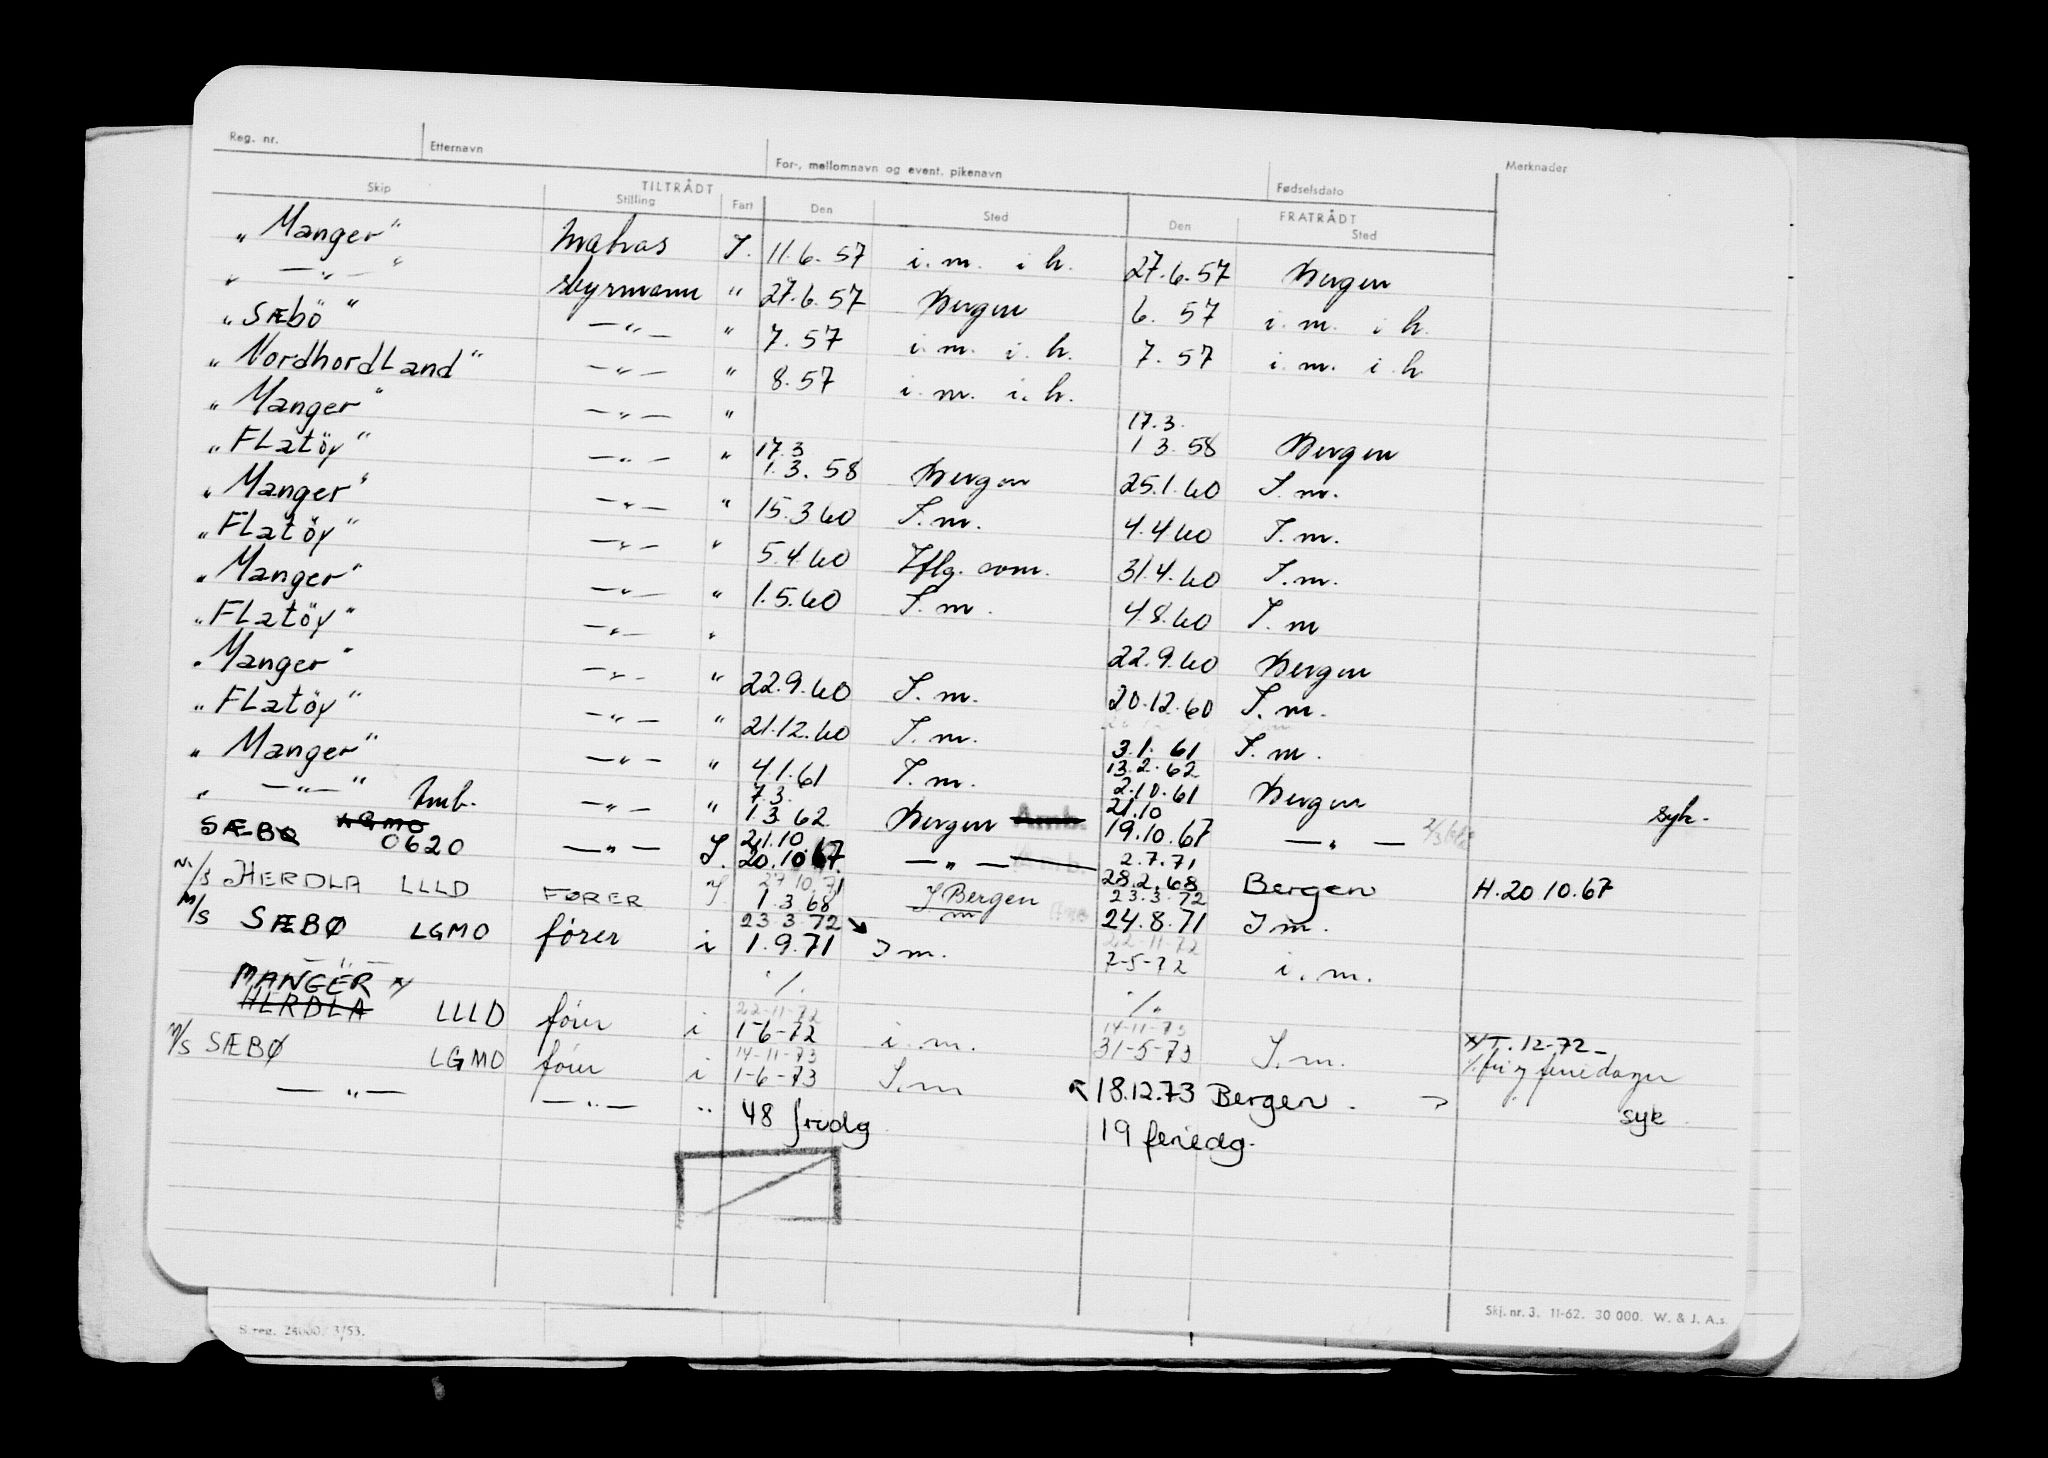 Reg. nr. Etternavn For-, mellomnavn og event. pikenavn Fødselsdato Merknader
TILTRÅDT FRATRÅDT
Skip Stilling Fart Den Sted Den Sted
„Manger" Matros I. 11.6.57 i.m. i h. 27.6.57 Bergen
„ —„— " styrmann " 27.6.57 Bergen 6. 57 i.m. i h.
„SÆbö" —„— " 7.57 i.m. i.h. 7.57 i.m. i h
„NordhordLand" —„— " 8.57 i.m. i.h.
„Manger" —„— " 17.3. 1 3.58 Bergen
„FLatöy" —„— " 17.3 1.3.58 Bergen 25.1.60 I.m.
„Manger" —„— " 15.3 60 I.m. 4.4 60 I.m.
„FLatöy" —„— " 5.4 60 Iflg. som. 31.4.60 I.m.
„Manger" —„— " 1.5.60 I.m. 4.8.60 I.m
„FLatöy" —„— " 22.9.60 Bergen
„Manger" —„— " 22.9.60 I.m. 20.12.60 I.m.
„FLatöy" —„— " 21.12.60 I.m. 3.1.61 I.m.
„Manger" —„— " 4.1.61 I.m. 13.2.62 2.10.61 Bergen syk.
„ —„— " Amb. —„— " 7.3. 1.3 62 Bergen Amb. 21.10 19.10.67 —„—
SÆBØ LGMO 0620 —„— I. 21.10. 20.10.67. —„— 2.7.71 28.2.68 Bergen H.20 10.67
M/S HERDLA LLLD FØRER I 27 10.71 1.3 68 I Bergen m 23.3.72 24.8.71 I m.
M/S SÆBØ LGMO fører i 23 3 72 1.9.71 I m. 22-11-72 7-5-72 i.m.
—„— ./. ./.
MANGER x/ HERDLA LLLD fører i 22-11-72 1-6-72 i.m. 14-11-73 31-5-73 I.m. x/ T. 12-72-
M/S SÆBØ LGMO fører i 14-11-73 1-6-73 I.m 18.12.73 Bergen. ./. fri og feriedager
—„— —„— " 48 fridg 19 feriedg. syk
Skj. nr. 3. 11-62. 30 000. W. & J. A.s.
S reg. 24000. 3/53.